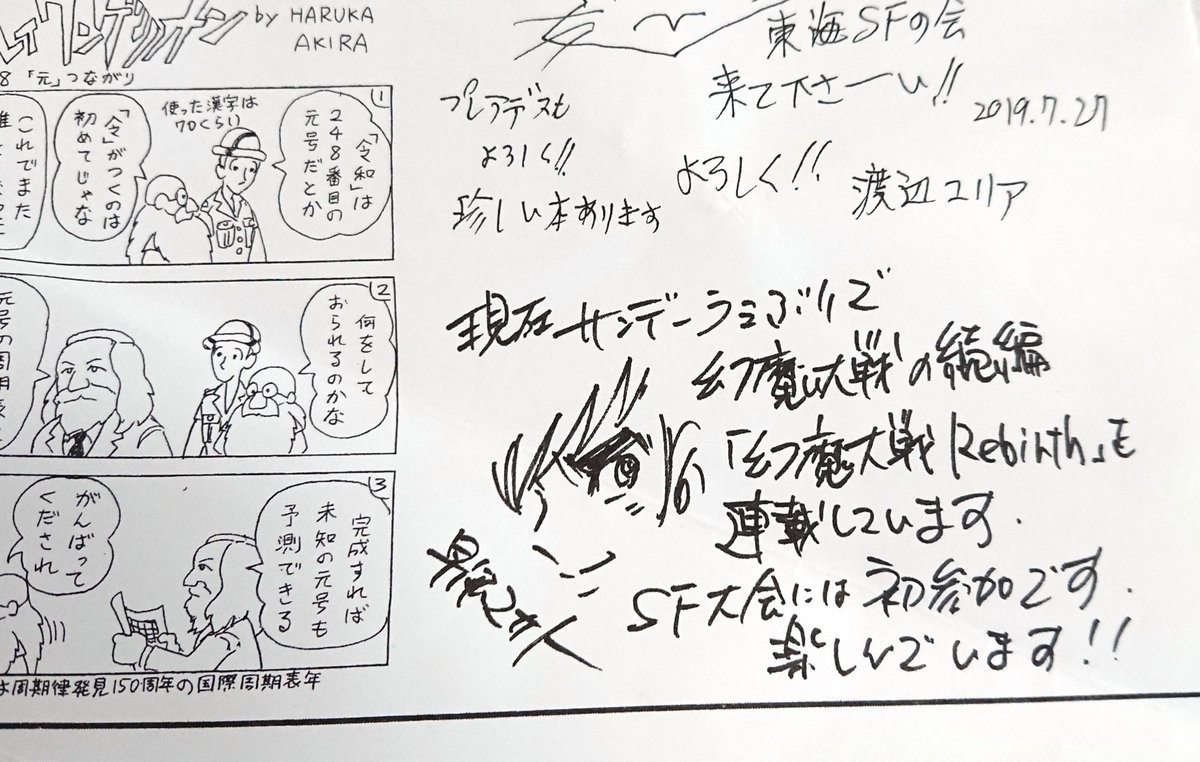 by HARUKA
AKIRA
8 「元」つながり
1
「令和」は
248番目の
元号だとか
使った漢字は
70くらい
「令」がつくのは
初めてじゃな
これでまた
2
何をして
おられるのかな
元号の周期表
3
完成すれば
未知の元号も
予測できる
がんばって
くだされ
は周期律発見150周年の国際周期表年
東海SFの会
来て下さーい!!
2019.7.27
プレアデスも
よろしく!!
珍しい本あります
よろしく!!
渡辺ユリア
現在サンデーうぇぶりで
幻魔大戦の続編
「幻魔大戦Rebirth」も
連載しています.
SF大会には初参加です.
楽しんでいます!!